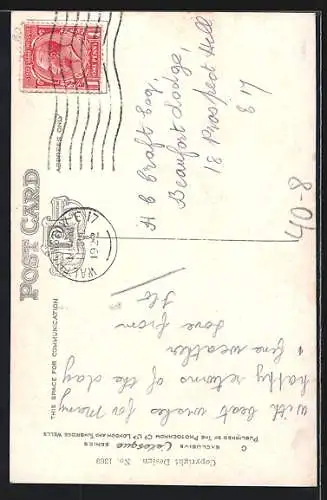 POST CARD
THIS SPACE FOR COMMUNICATION
ADDRESS ONLY
ONE PENNY
WALTHAMSTOW E.17
1922
H E Craft Esq,
Beaufort Lodge,
18 Prospect Hill
E 17
40-8
With best wishes for Many
happy returns of the day
& fine weather
Love from
Flo
EXCLUSIVE Celesque SERIES
PUBLISHED BY THE PHOTOCHROM CO LTD LONDON AND TUNBRIDGE WELLS
Copyright Design. No. 1369